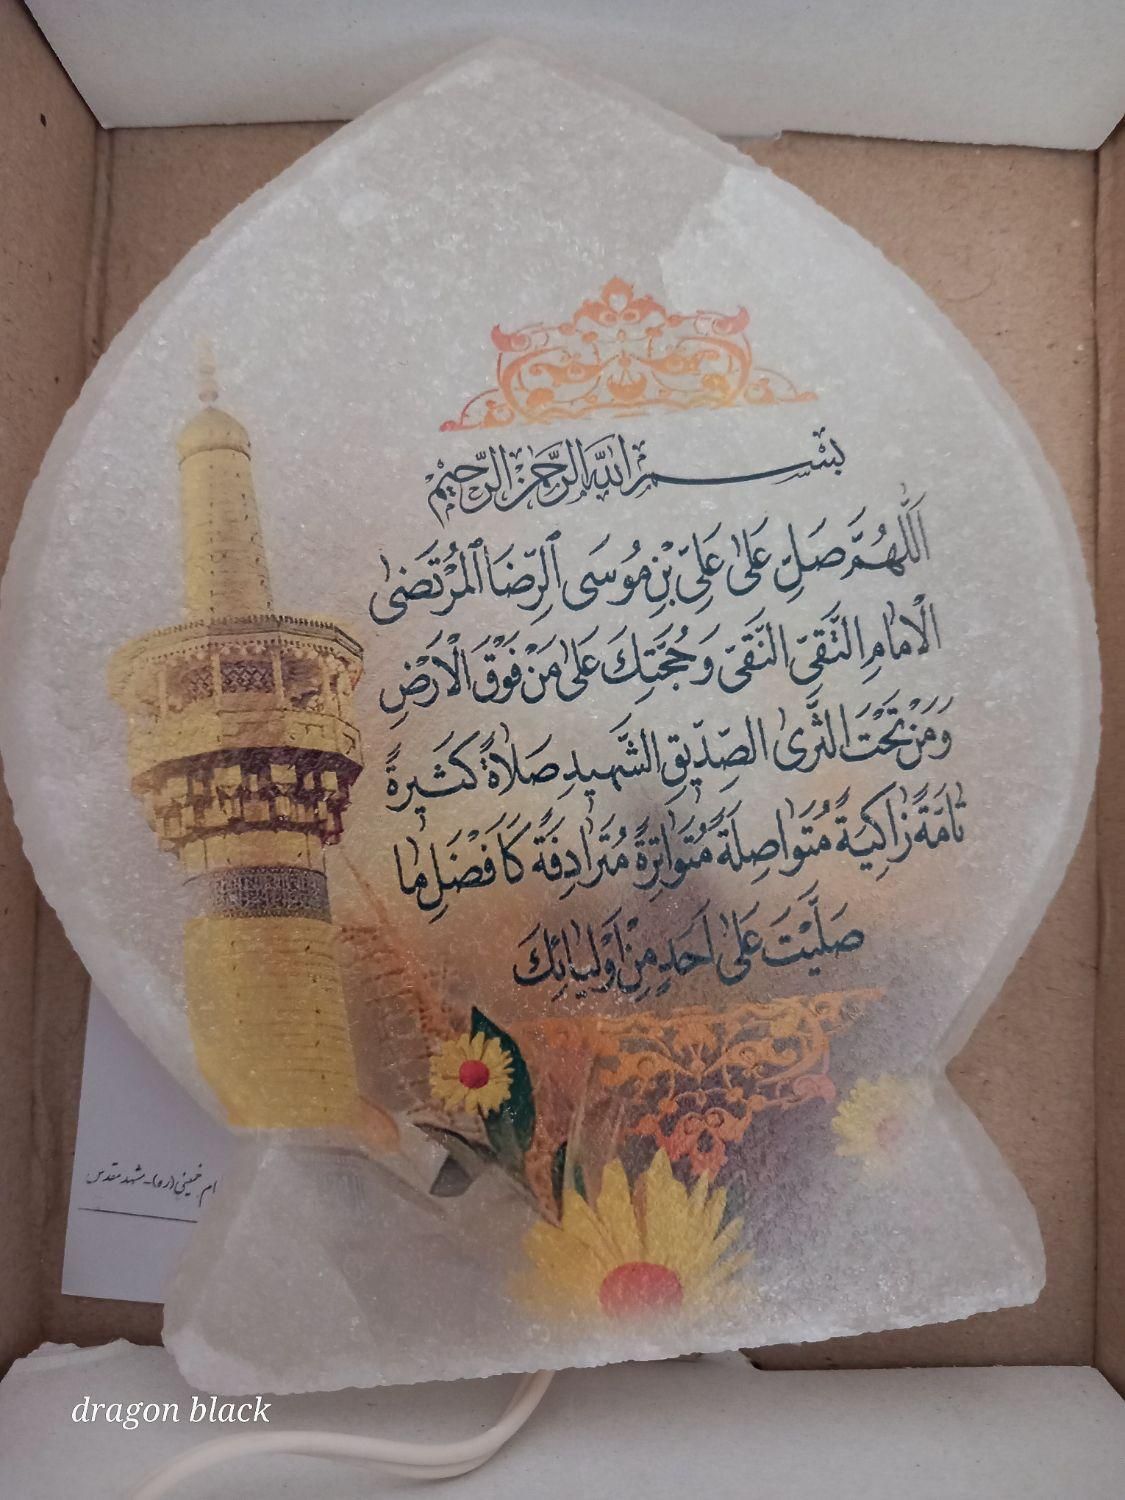 بِسْمِ اللهِ الرَّحْمٰنِ الرَّحِيْمِ
اَللّٰهُمَّ صَلِّ عَلىٰ عَلِيِّ بْنِ مُوسَى ٱلرِّضَا ٱلْمُرْتَضىٰ
الْاِمامِ التَّقِيِّ النَّقِيِّ وَحُجَّتِكَ عَلىٰ مَنْ فَوْقَ الْاَرْضِ
وَمَنْ تَحْتَ الثَّرىٰ الصِّدّيقِ الشَّهيدِ صَلاةً كَثيرَةً
تامَّةً زاكِيَةً مُتَواصِلَةً مُتَواتِرَةً مُتَرادِفَةً كَاَفْضَلِ ما
صَلَّيْتَ عَلىٰ اَحَدٍ مِنْ اَوْلِيائِكَ
ام خمینی (ره) - مشهد مقدس
dragon black